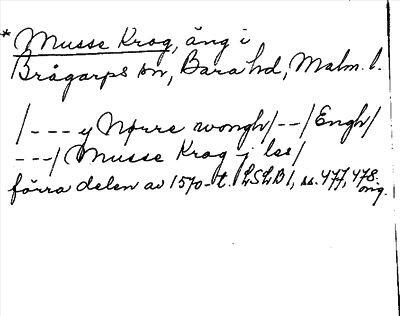 * Musse Krog, äng i
Brågarps sn, Bara hd, Malm. l.
/--- y Nørre wongh/--/Engh/
---/ Musse Krog j les/
förra delen av 1570-t. LSLB 1, ss. 477, 478.
orig.